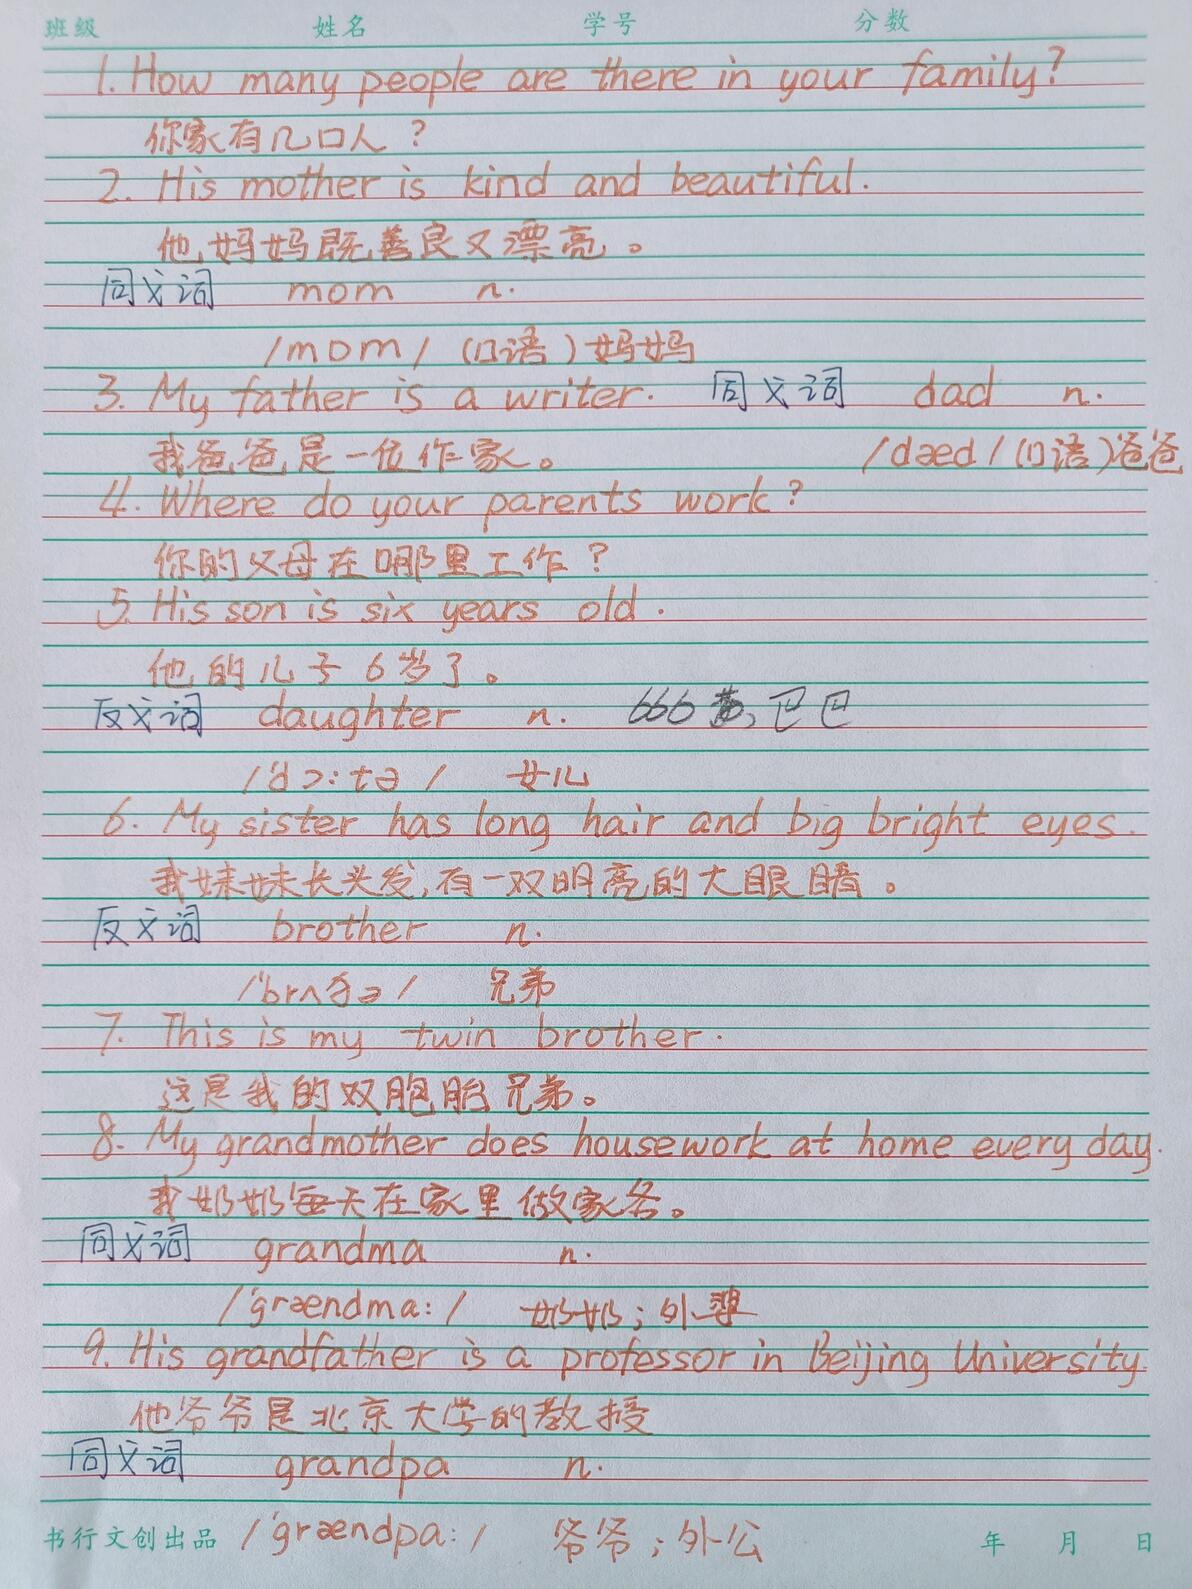 班级 姓名 学号 分数
1. How many people are there in your family?
你家有几口人？
2. His mother is kind and beautiful.
他妈妈既善良又漂亮。
同义词 mom n.
/mɒm/ (口语) 妈妈
3. My father is a writer. 同义词 dad n.
我爸爸是一位作家。 /dæd/ (口语) 爸爸
4. Where do your parents work?
你的父母在哪里工作？
5. His son is six years old.
他的儿子6岁了。
反义词 daughter n. 666 , 巴巴
/'dɔ:tə/ 女儿
6. My sister has long hair and big bright eyes.
我妹妹长头发,有一双明亮的大眼睛。
反义词 brother n.
/'brʌðə/ 兄弟
7. This is my twin brother.
这是我的双胞胎兄弟。
8. My grandmother does housework at home every day.
我奶奶每天在家里做家务。
同义词 grandma n.
/'grændma:/ 奶奶；外婆
9. His grandfather is a professor in Beijing University.
他爷爷是北京大学的教授
同义词 grandpa n.
书行文创出品 /'grændpa:/ 爷爷；外公 年 月 日